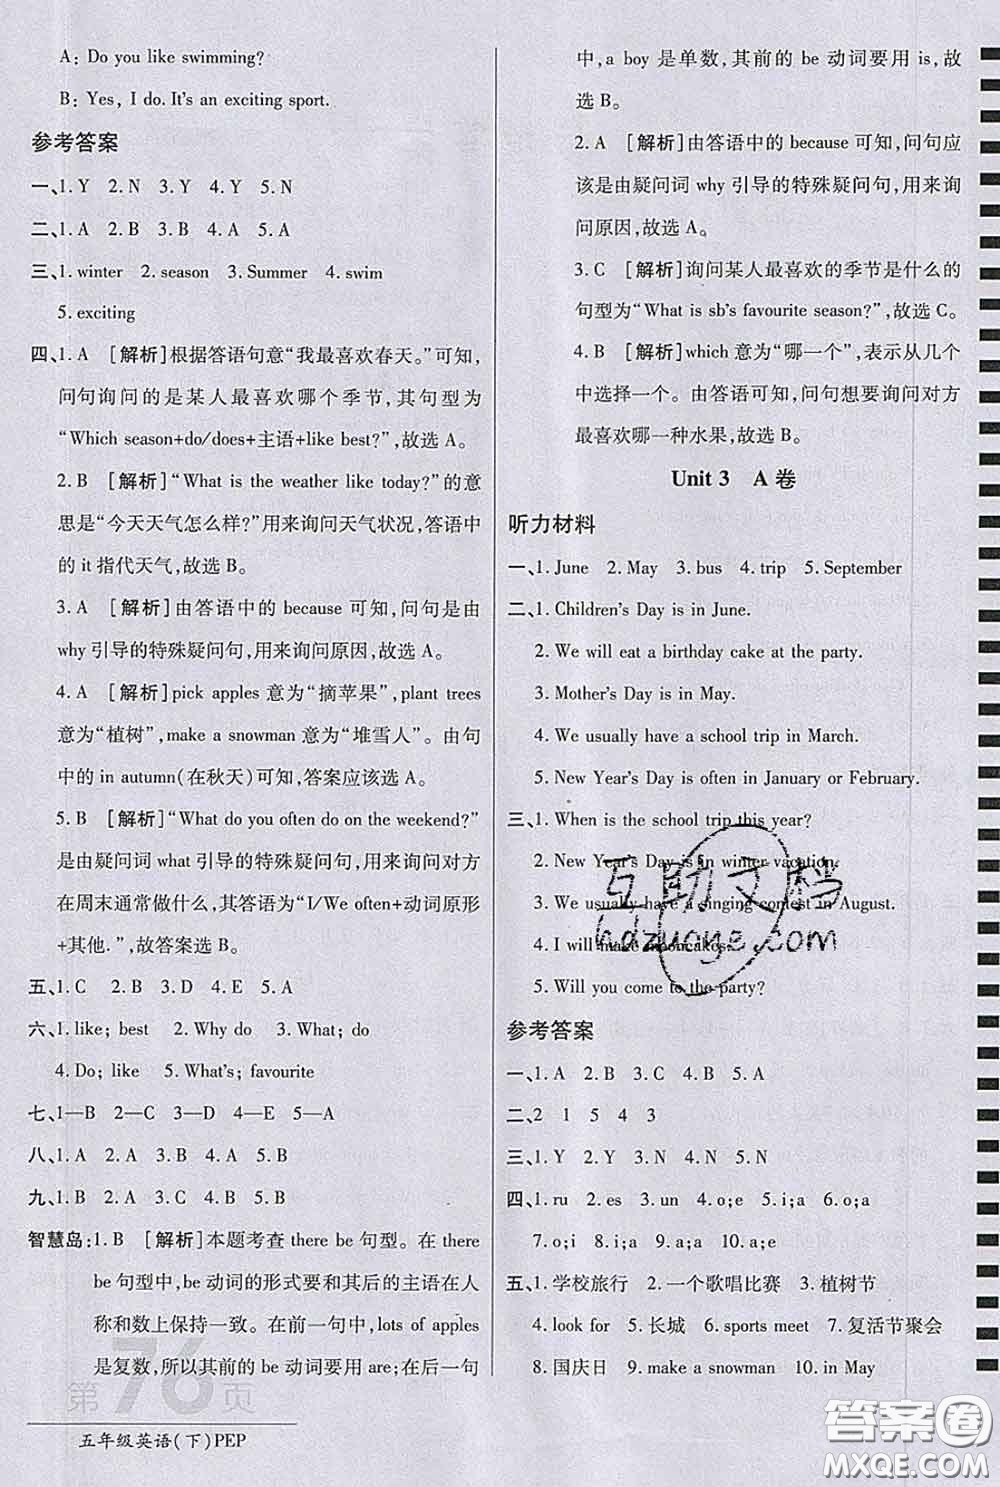 A: Do you like swimming?
B: Yes, I do. It's an exciting sport.
参考答案
一、1. Y 2. N 3. Y 4. Y 5. N
二、1. A 2. B 3. B 4. A 5. A
三、1. winter 2. season 3. Summer 4. swim
5. exciting
四、1. A [解析]根据答语句意“我最喜欢春天。”可知,
问句询问的是某人最喜欢哪个季节,其句型为
“Which season+do/does+主语+like best?”,故选 A。
2. B [解析]“What is the weather like today?”的意
思是“今天天气怎么样?”用来询问天气状况,答语中
的 it 指代天气,故选 B。
3. A [解析]由答语中的 because 可知,问句是由
why 引导的特殊疑问句,用来询问原因,故选 A。
4. A [解析]pick apples 意为“摘苹果”,plant trees
意为“植树”,make a snowman 意为“堆雪人”。由句
中的 in autumn(在秋天)可知,答案应该选 A。
5. B [解析]“What do you often do on the weekend?”
是由疑问词 what 引导的特殊疑问句,用来询问对方
在周末通常做什么,其答语为“I/We often+动词原形
+其他.”,故答案选 B。
五、1. C 2. A 3. B 4. B 5. A
六、1. like; best 2. Why do 3. What; do
4. Do; like 5. What's; favourite
七、1—B 2—C 3—D 4—E 5—A
八、1. A 2. A 3. B 4. A 5. B
九、1. B 2. A 3. C 4. B 5. B
智慧岛:1. B [解析]本题考查 there be 句型。在 there
be 句型中,be 动词的形式要和其后的主语在人
称和数上保持一致。在前一句中,lots of apples
是复数,所以其前的 be 动词要用 are;在后一句
第76页
五年级英语(下)PEP
中,a boy 是单数,其前的 be 动词要用 is,故
选 B。
2. A [解析]由答语中的 because 可知,问句应
该是由疑问词 why 引导的特殊疑问句,用来询
问原因,故选 A。
3. C [解析]询问某人最喜欢的季节是什么的
句型为“What is sb's favourite season?”,故选 C。
4. B [解析]which 意为“哪一个”,表示从几个
中选择一个。由答语可知,问句想要询问对方
最喜欢哪一种水果,故选 B。
Unit 3 A 卷
听力材料
一、1. June 2. May 3. bus 4. trip 5. September
二、1. Children's Day is in June.
2. We will eat a birthday cake at the party.
3. Mother's Day is in May.
4. We usually have a school trip in March.
5. New Year's Day is often in January or February.
三、1. When is the school trip this year?
2. New Year's Day is in winter vacation.
3. We usually have a singing contest in August.
4. I will make mooncakes.
5. Will you come to the party?
互助文档
hdzuoye.com
参考答案
一、1. A 2. B 3. C 4. B 5. A
二、2 1 5 4 3
三、1. Y 2. Y 3. N 4. N 5. Y
四、1. ru 2. es 3. un 4. o;e 5. i;a 6. o;a
7. o;i 8. i;a 9. o;e 10. a;a
五、1. 学校旅行 2. 一个歌唱比赛 3. 植树节
4. look for 5. 长城 6. sports meet 7. 复活节聚会
8. 国庆日 9. make a snowman 10. in May
答案圈
MXQE.COM